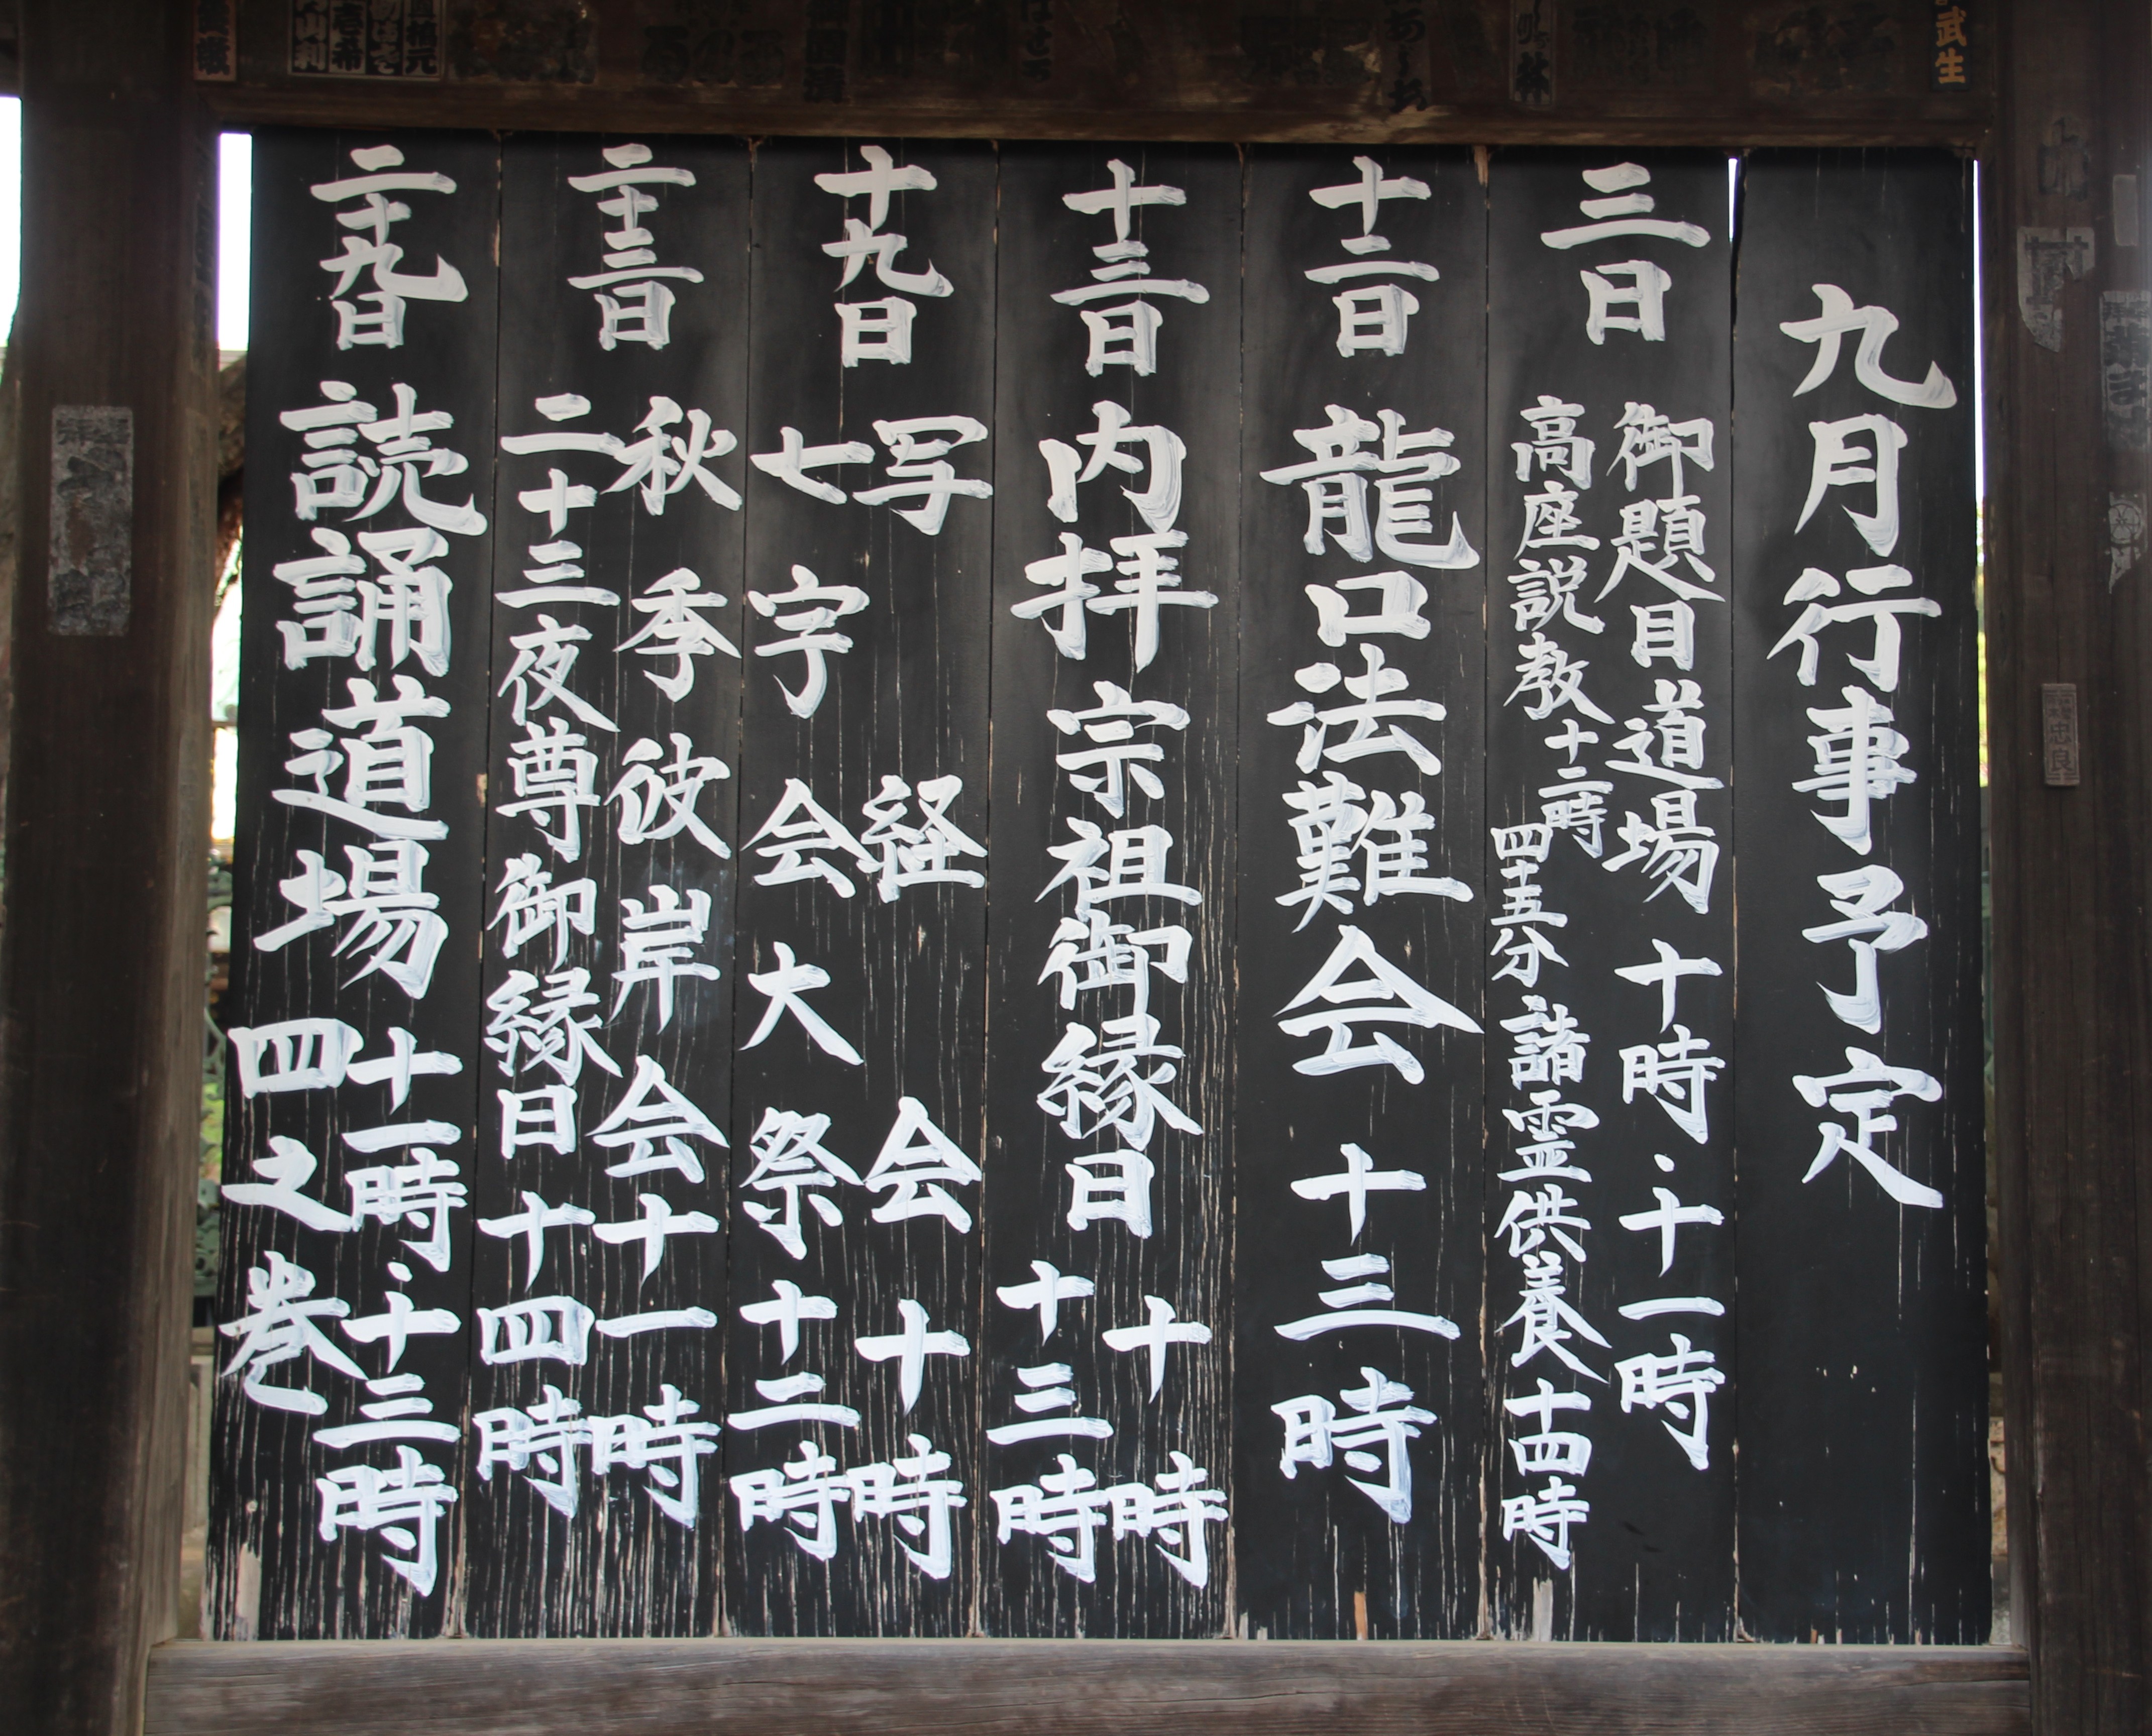 九月行事予定
三日
御題目道場 十時・十一時
高座説教 十二時四十五分 諸霊供養 十四時
十二日
龍口法難会 十三時
十三日
内拝 宗祖御縁日 十時
十三時
十九日
写経会 十時
七字会大祭 十二時
二十三日
秋季彼岸会 十一時
二十三夜尊御縁日 十四時
二十九日
読誦道場 十一時・十三時
四之巻
武生